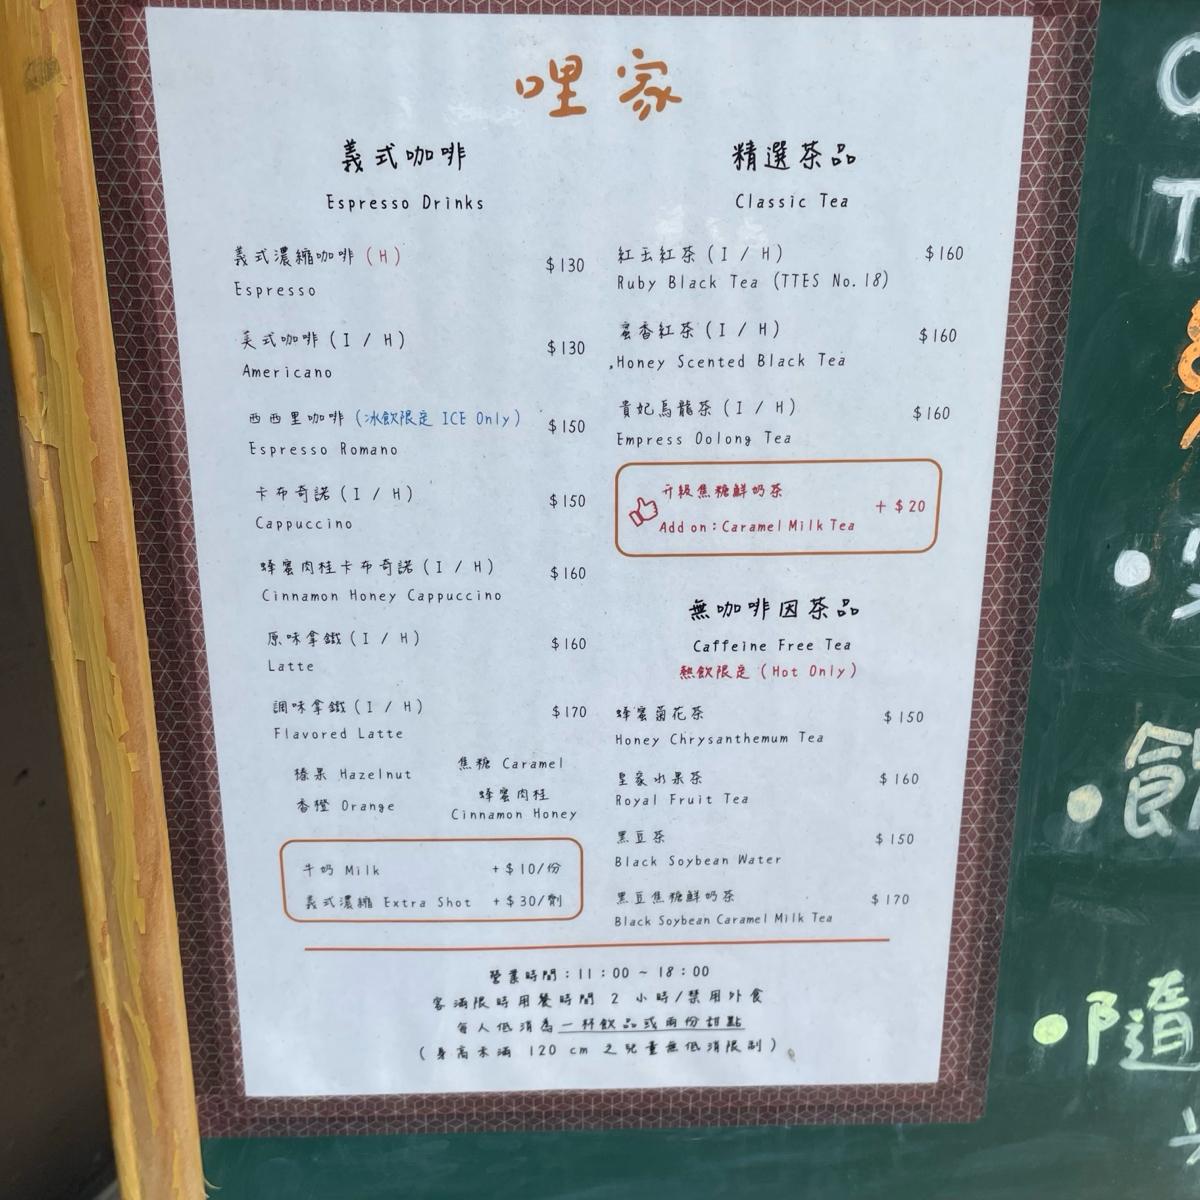 哩家
義式咖啡
Espresso Drinks
義式濃縮咖啡 (H) $130
Espresso
美式咖啡 (I / H) $130
Americano
西西里咖啡 (冰飲限定 ICE Only) $150
Espresso Romano
卡布奇諾 (I / H) $150
Cappuccino
蜂蜜肉桂卡布奇諾 (I / H) $160
Cinnamon Honey Cappuccino
原味拿鐵 (I / H) $160
Latte
調味拿鐵 (I / H) $170
Flavored Latte
榛果 Hazelnut
焦糖 Caramel
香橙 Orange
蜂蜜肉桂
Cinnamon Honey
牛奶 Milk +$10/份
義式濃縮 Extra Shot +$30/劑
精選茶品
Classic Tea
紅玉紅茶 (I / H) $160
Ruby Black Tea (TTES No.18)
蜜香紅茶 (I / H) $160
Honey Scented Black Tea
貴妃烏龍茶 (I / H) $160
Empress Oolong Tea
升級焦糖鮮奶茶 +$20
Add on：Caramel Milk Tea
無咖啡因茶品
Caffeine Free Tea
熱飲限定 (Hot Only)
蜂蜜菊花茶 $150
Honey Chrysanthemum Tea
皇家水果茶 $160
Royal Fruit Tea
黑豆茶 $150
Black Soybean Water
黑豆焦糖鮮奶茶 $170
Black Soybean Caramel Milk Tea
營業時間：11：00 ~ 18：00
客滿限時用餐時間 2 小時/禁用外食
每人低消為一杯飲品或兩份甜點
(身高未滿 120 cm 之兒童無低消限制)
隨